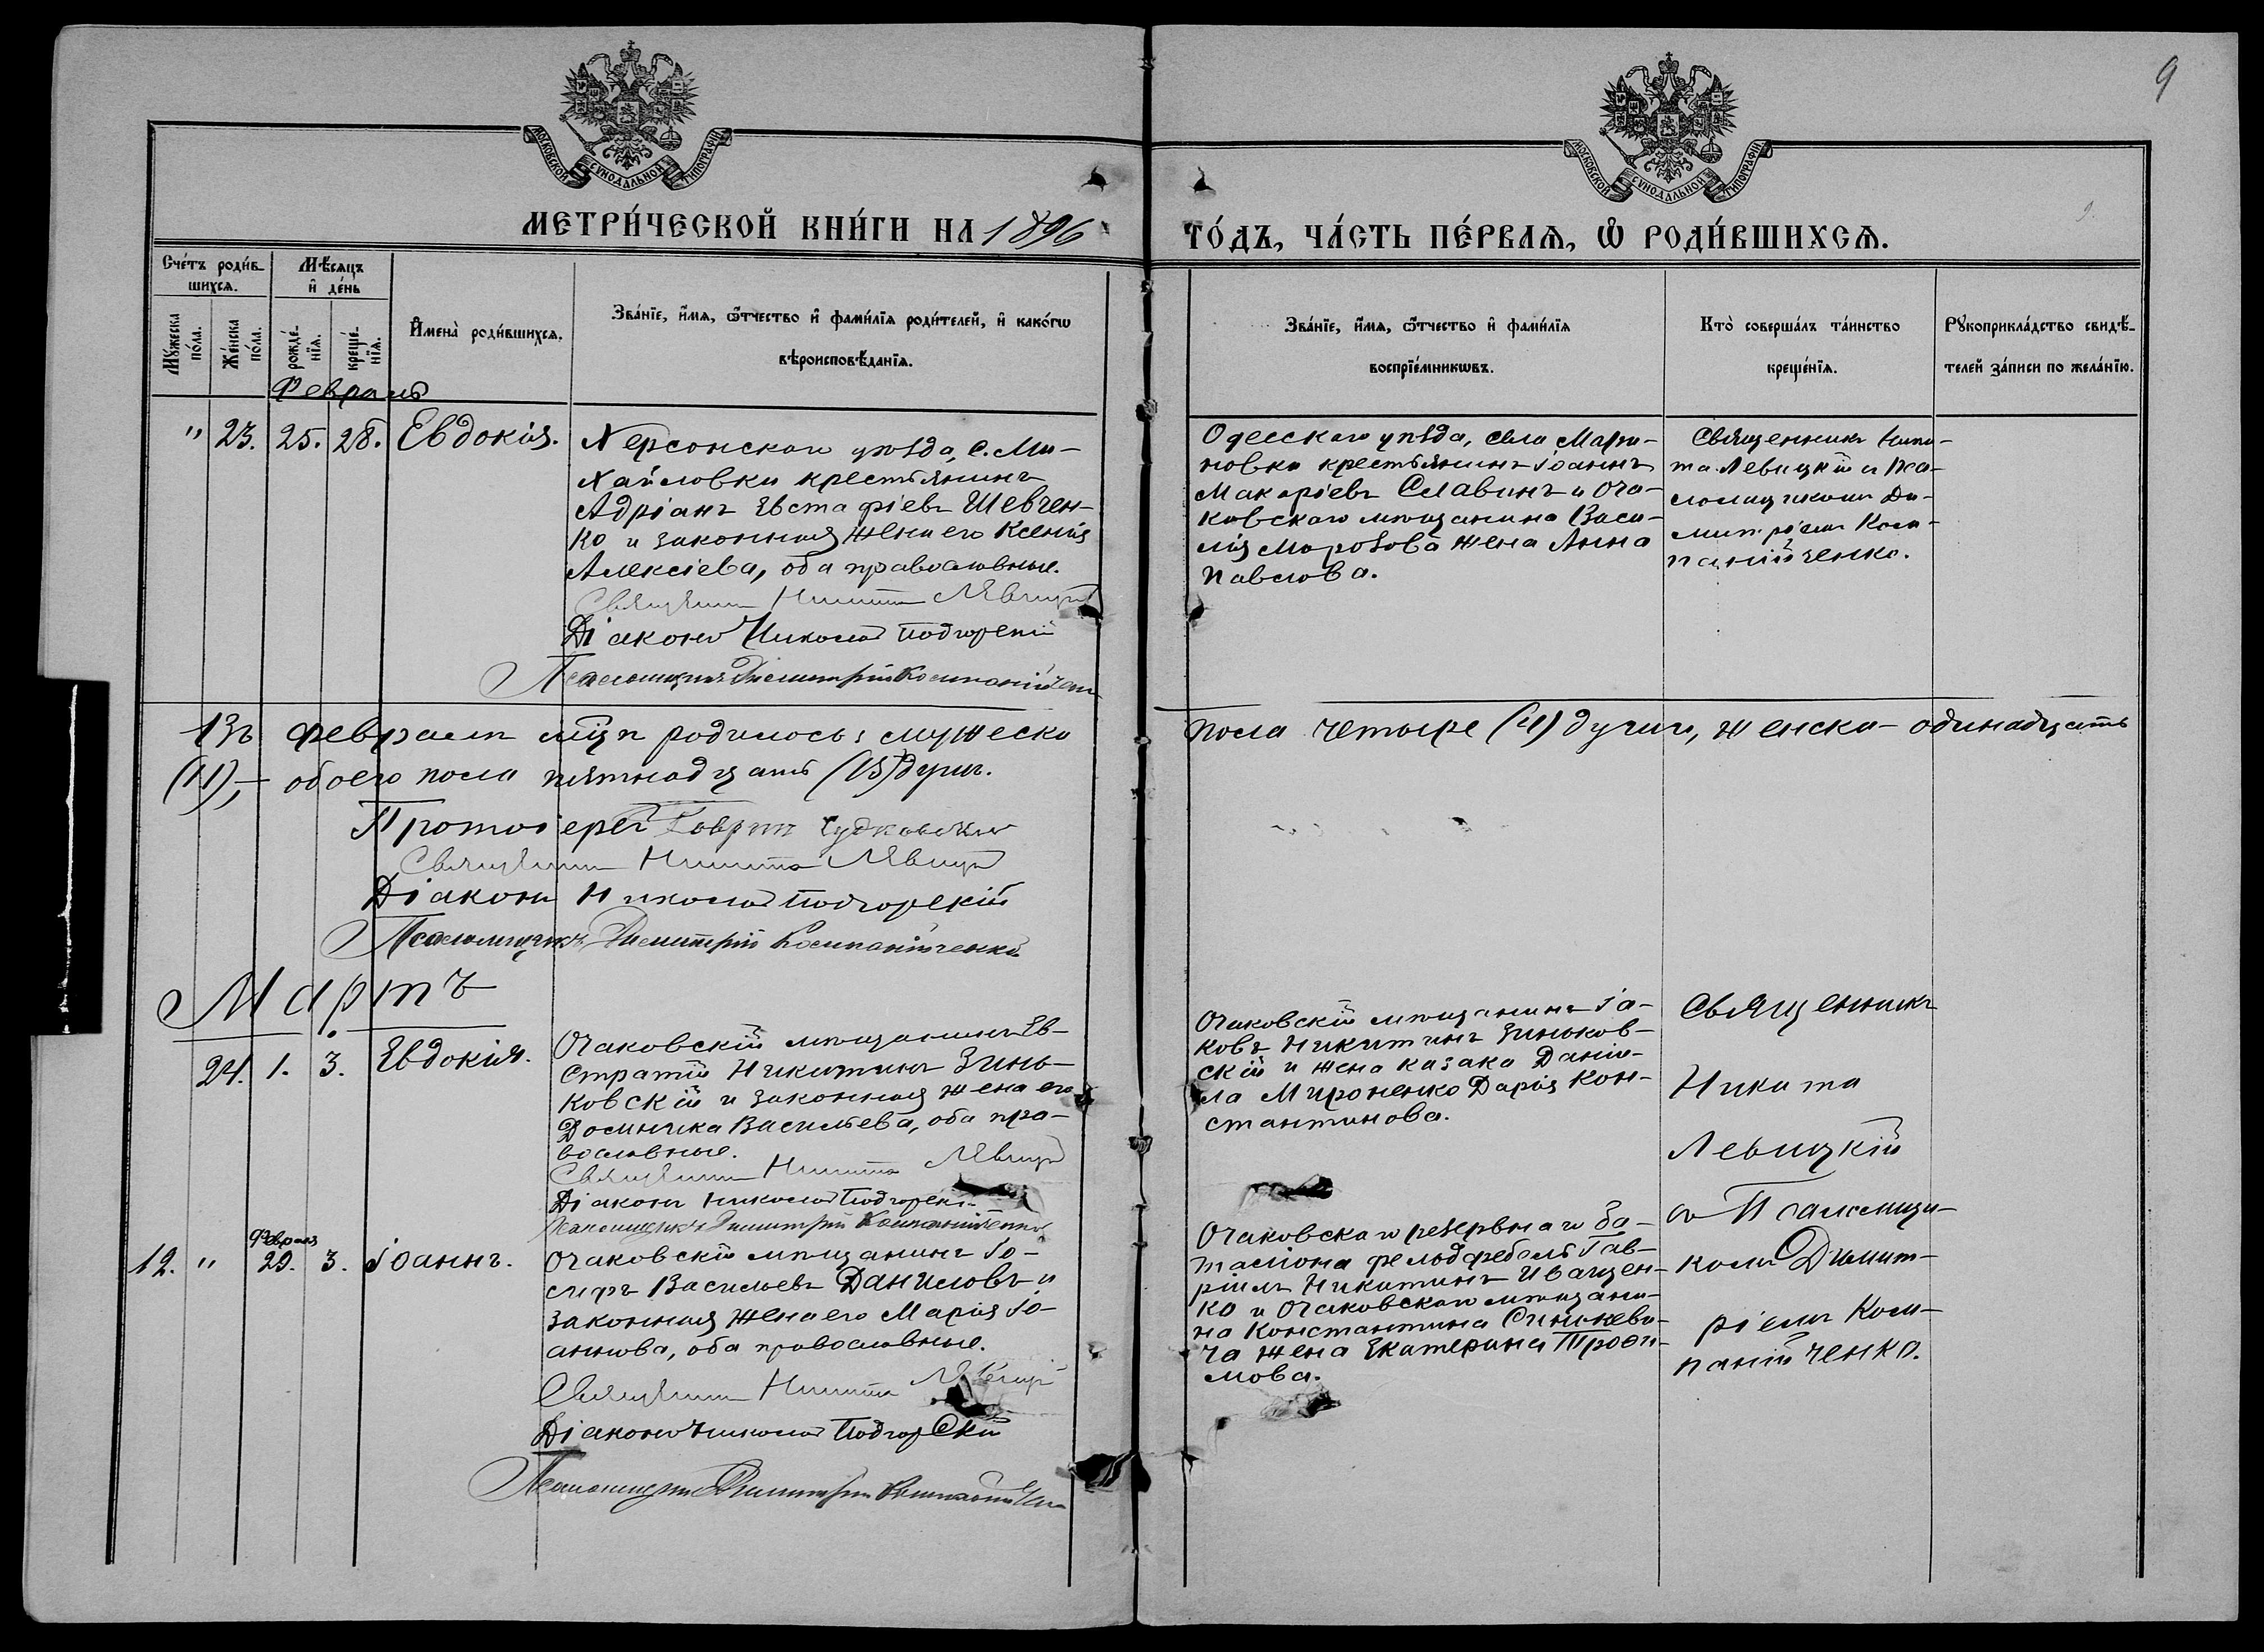 9
МОСКОВСКОЙ СѴНОДАЛЬНОЙ ТИПОГРАФІИ
МОСКОВСКОЙ СѴНОДАЛЬНОЙ ТИПОГРАФІИ
МЕТРИ́ЧЕСКОЙ КНИ́ГИ НА 1896
ГО́ДЪ, ЧА́СТЬ ПЕ́РВАѦ, Ѽ РОДИ́ВШИХСѦ.
Сче́тъ роди́в-
шихсѧ.
Мѣ́сѧцъ
и҆ де́нь
Мꙋ́жеска
по́ла.
Же́нска
по́ла.
рожде́-
нїѧ.
креще́-
нїѧ.
И҆мена̀ роди́вшихсѧ.
Зва́нїе, и҆́мѧ, ѻ҆́тчество и҆ фамі́лїѧ роди́телей, и҆ како́гѡ
вѣроисповѣ́данїѧ.
Зва́нїе, и҆́мѧ, ѻ҆́тчество и҆ фамі́лїѧ
воспрїе́мникѡвъ.
Кто̀ соверша́лъ та́инство
креще́нїѧ.
Рꙋкоприкла́дство свидѣ́-
телей за́писи по жела́нїю.
Февраль
" 23. 25. 28. Евдокія.
Херсонскаго уѣзда, с. Ми-
хайловки крестьянинъ
Адріанъ Евстафіевъ Шевчен-
ко и законная жена его Ксенія
Алексіева, оба православные.
Священникъ Никита Левицкій
Діаконъ Николай Подгорскій
Псаломщикъ Димитрій Компанійченко
Одесскаго уѣзда, села Мари-
новки крестьянинъ Іоаннъ
Макаріевъ Славинъ и Оча-
ковскаго мѣщанина Васи-
лія Морозова жена Анна
Павлова.
Священникъ Ники-
та Левицкій и пса-
ломщикомъ Ди-
митріемъ Ком-
панійченко.
Въ февралѣ мцѣ родилось: мужеска
пола четыре (4) души, женска - одинадцать
(11), - обоего пола пятнадцать (15) душъ.
Протоіерей Гавріилъ Судковскій
Священникъ Никита Левицкій
Діаконъ Николай Подгорскій
Псаломщикъ Димитрій Компанійченко
Мартъ
24. 1. 3. Евдокія.
Очаковскій мѣщанинъ Ев-
стратій Никитинъ Зинь-
ковскій и законная жена его
Домника Васильева, оба пра-
вославные.
Священникъ Никита Левицкій
Діаконъ Николай Подгорскій
Псаломщикъ Димитрій Компанійченко
Очаковскій мѣщанинъ Іа-
ковъ Никитинъ Зиньков-
скій и жена казака Даніи-
ла Мироненко Дарія Кон-
стантинова.
Священникъ
Никита
Левицкій
съ Псаломщи-
комъ Димит-
ріемъ Ком-
панійченко.
Февраля
12. " 29. 3. Іоаннъ.
Очаковскій мѣщанинъ Іо-
сифъ Васильевъ Даниловъ и
законная жена его Марія Іо-
аннова, оба православные.
Священникъ Никита Левицкій
Діаконъ Николай Подгорскій
Псаломщикъ Димитрій Компанійченко
Очаковскаго резервнаго ба-
таліона фельдфебель Гав-
ріилъ Никитинъ Иващен-
ко и Очаковскаго мѣщани-
на Константина Синкеви-
ча жена Екатерина Трофи-
мова.